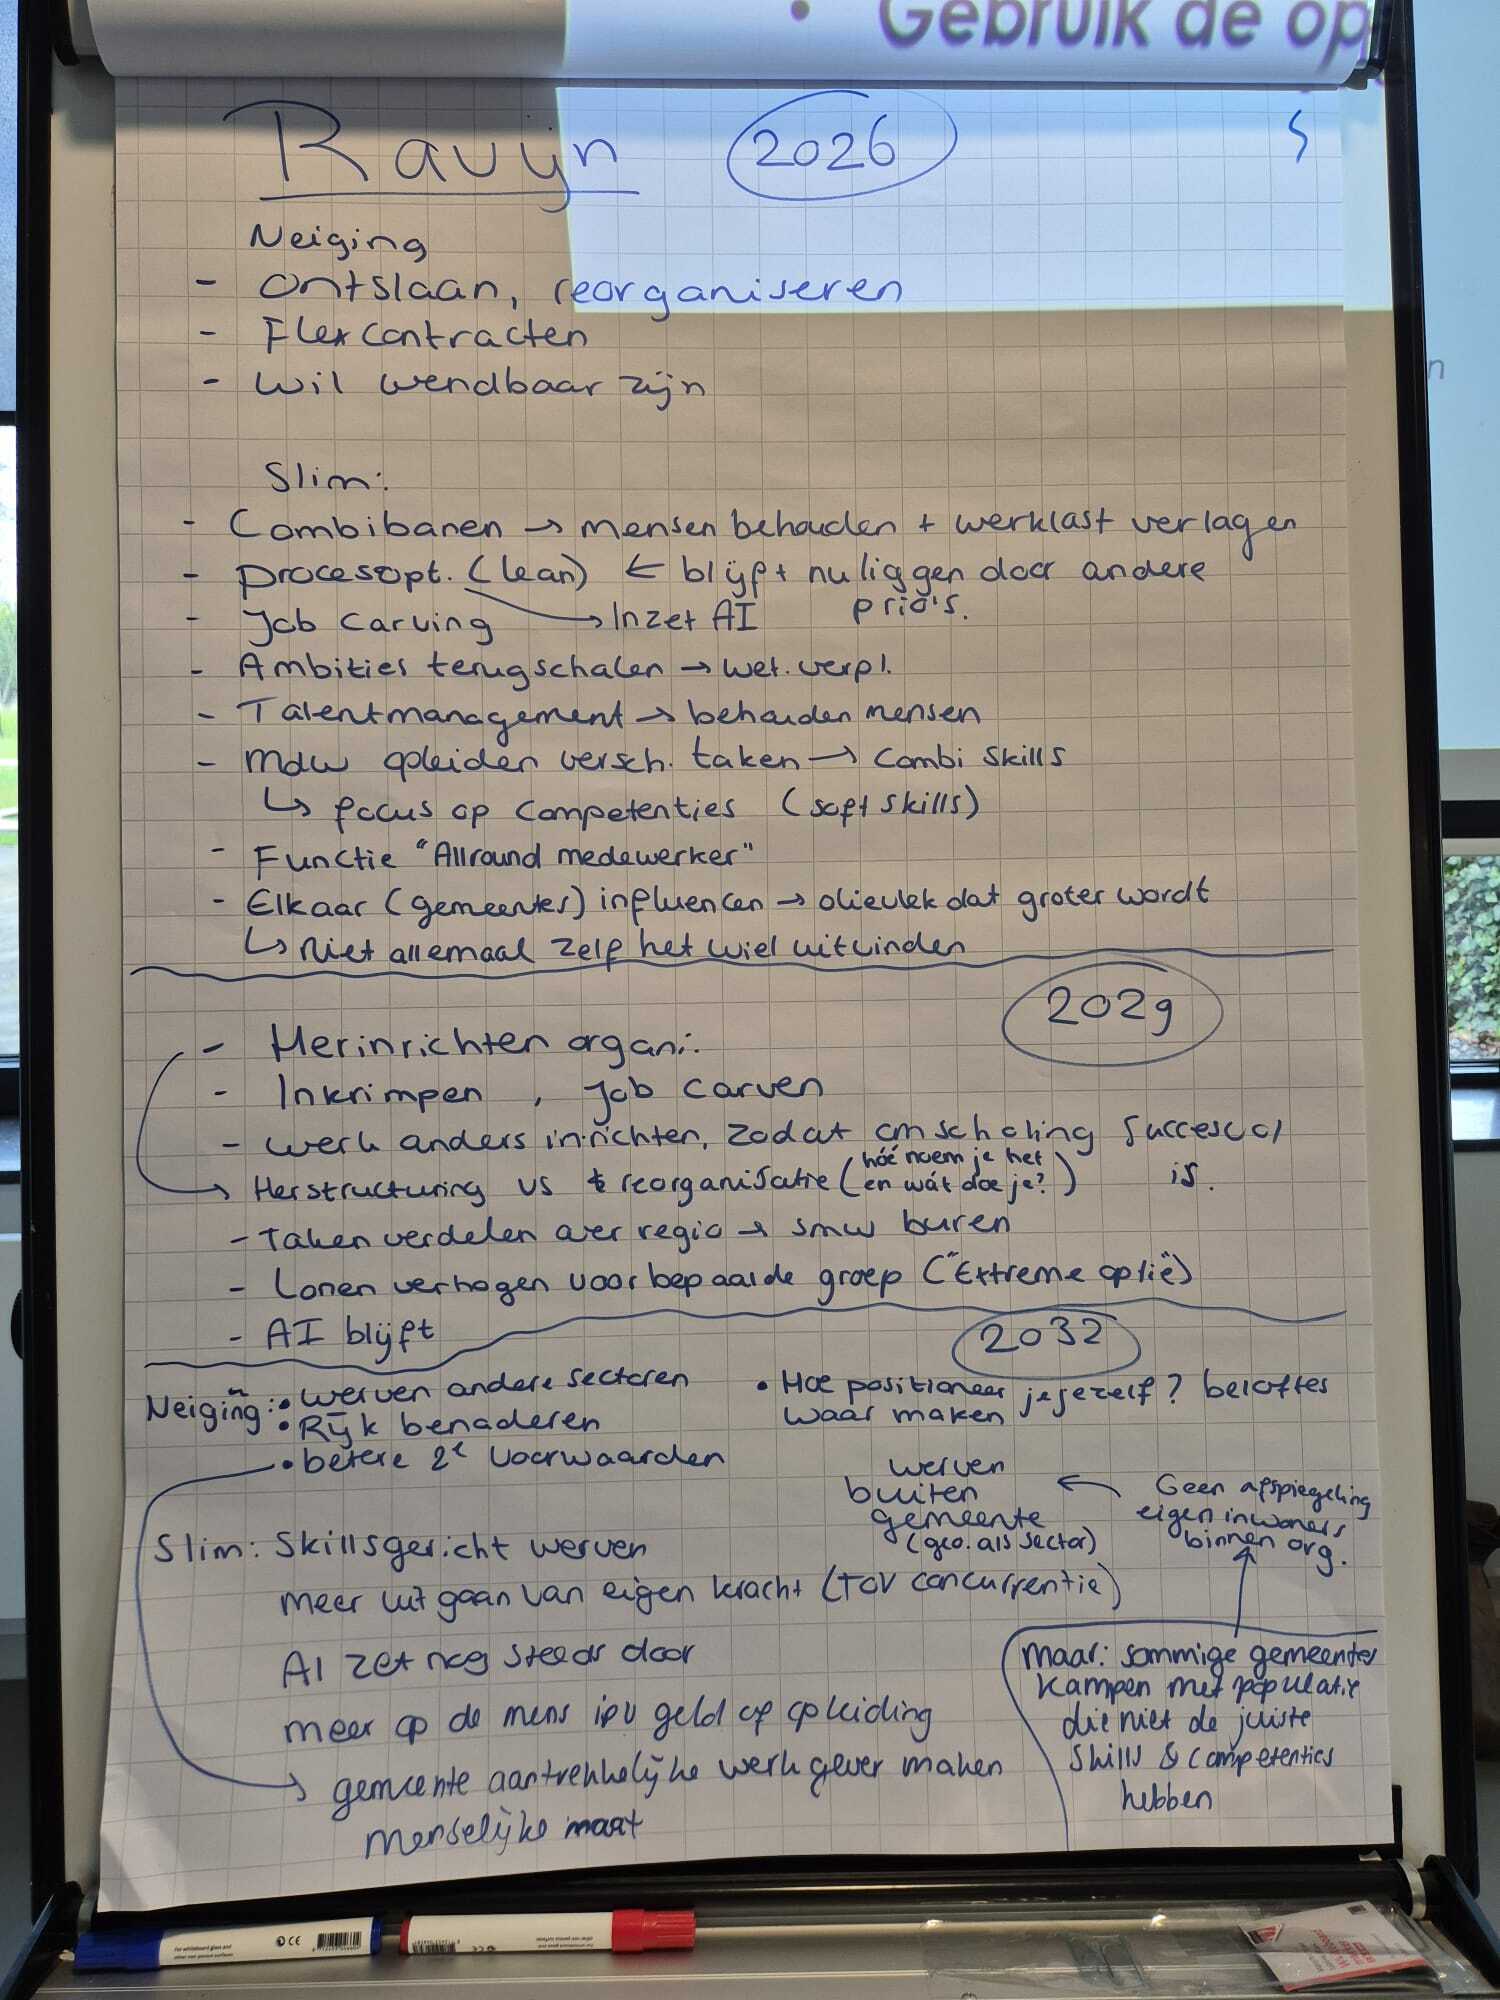 • Gebruik de op
Ravijn 2026
Neiging
- Ontslaan, reorganiseren
- Flexcontracten
- Wil wendbaar zijn
Slim:
- Combibanen → mensen behouden + werklast verlagen
- procesopt. (lean) ← blijft nu liggen door andere prio's.
→ Inzet AI
- Job carving
- Ambities terugschalen → wet. verpl.
- Talentmanagement → behouden mensen
- Mdw opleiden versch. taken → combi skills
↳ focus op competenties (soft skills)
- Functie "Allround medewerker"
- Elkaar (gemeentes) influencen → olievlek dat groter wordt
↳ Niet allemaal zelf het wiel uitvinden
2029
- Herinrichten organi.
- Inkrimpen, job carven
- werk anders inrichten, zodat omscholing succesvol is.
→ Herstructuring vs reorganisatie (hóé noem je het en wát doe je?)
- Taken verdelen over regio → smw buren
- Lonen verhogen voor bepaalde groep ("Extreme optie")
- AI blijft
2032
Neiging: • werven andere sectoren
• Rijk benaderen
• betere 2e voorwaarden
• Hoe positioneer je jezelf? beloftes
waar maken
werven
buiten
gemeente
(geo. als sector)
← Geen afspiegeling
eigen inwoners
binnen org.
Slim: Skillsgericht werven
meer uit gaan van eigen kracht (TOV concurrentie)
AI zet nog steeds door
meer op de mens ipv geld op opleiding
→ gemeente aantrekkelijke werkgever maken
Menselijke maat
maar: sommige gemeentes
kampen met populatie
die niet de juiste
skills & competenties
hebben